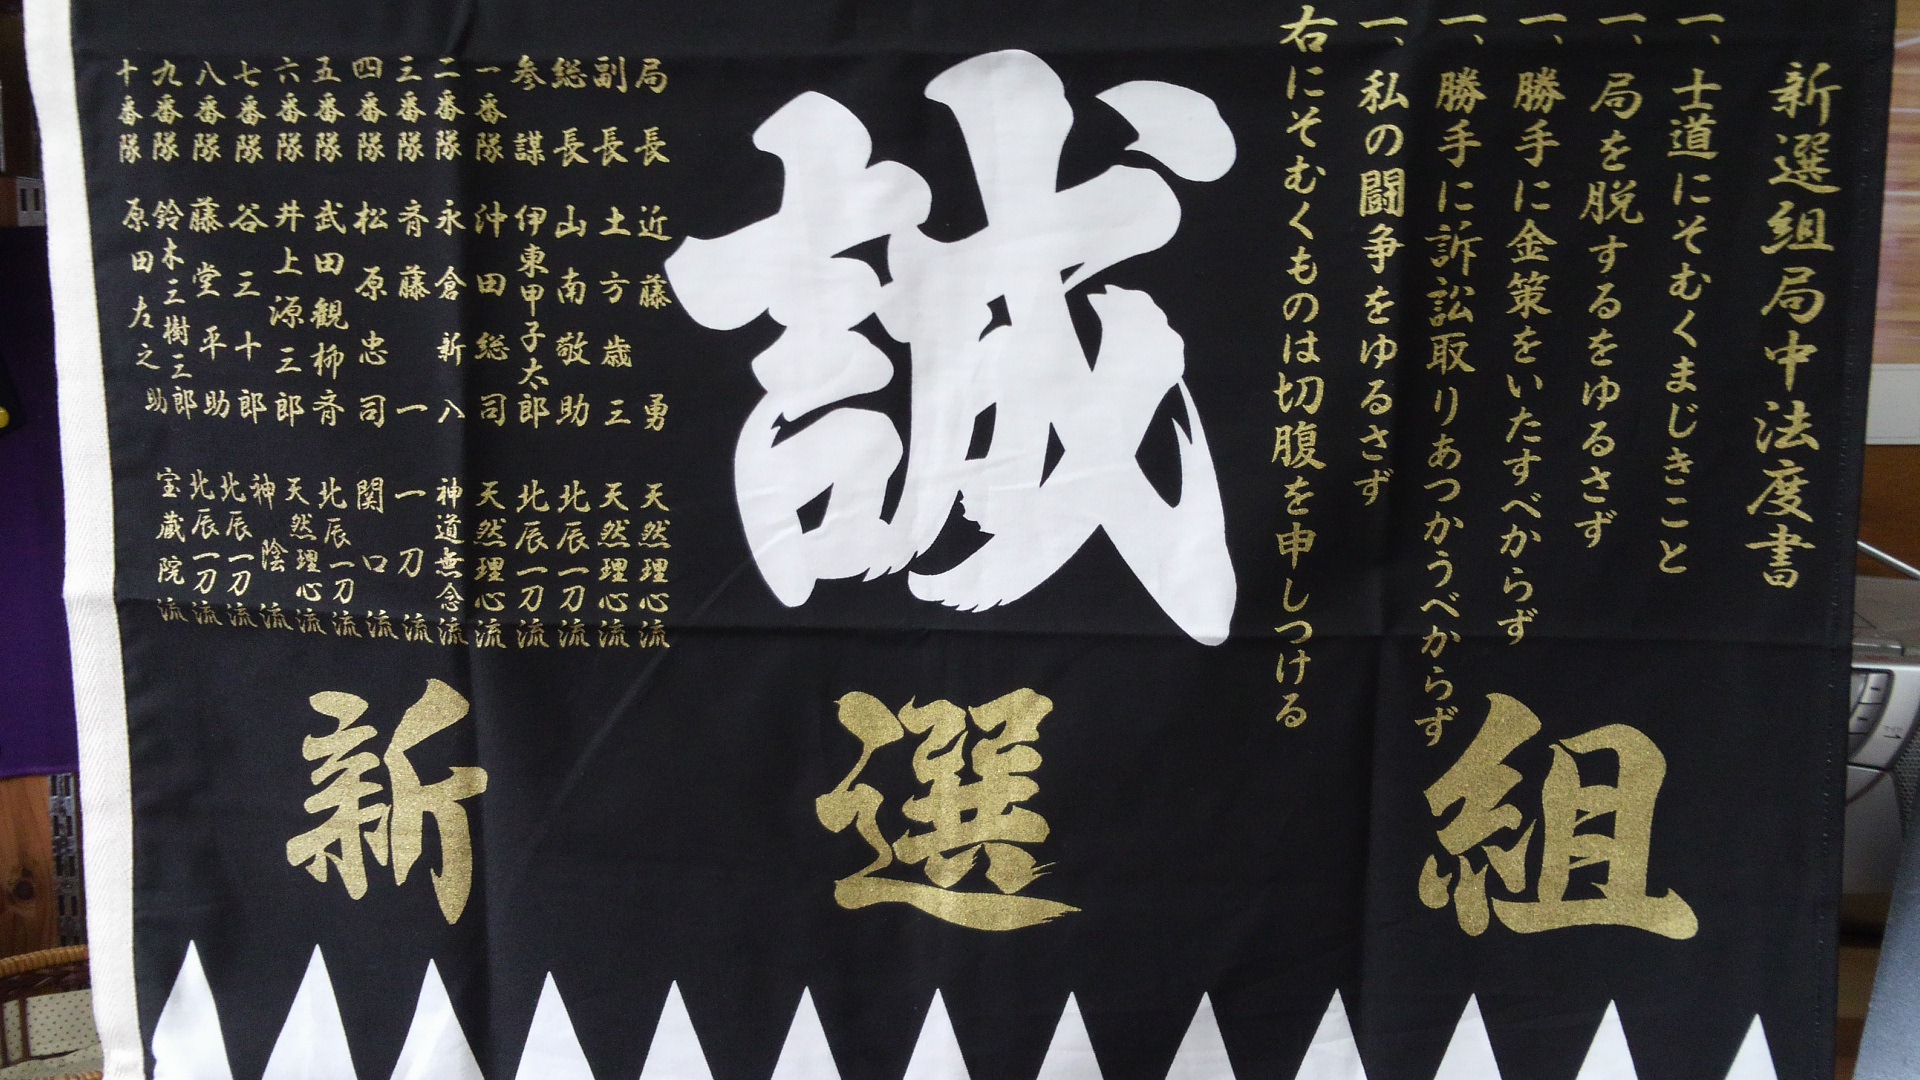 新選組局中法度書
一、士道にそむくまじきこと
一、局を脱するをゆるさず
一、勝手に金策をいたすべからず
一、勝手に訴訟取りあつかうべからず
一、私の闘争をゆるさず
右にそむくものは切腹を申しつける
誠
局長 近藤勇 天然理心流
副長 土方歳三 天然理心流
総長 山南敬助 北辰一刀流
参謀 伊東甲子太郎 北辰一刀流
一番隊 沖田総司 天然理心流
二番隊 永倉新八 神道無念流
三番隊 斉藤一 一刀流
四番隊 松原忠司 関口流
五番隊 武田観柳斉 北辰一刀流
六番隊 井上源三郎 天然理心流
七番隊 谷三十郎 神陰流
八番隊 藤堂平助 北辰一刀流
九番隊 鈴木三樹三郎 北辰一刀流
十番隊 原田左之助 宝蔵院流
新選組